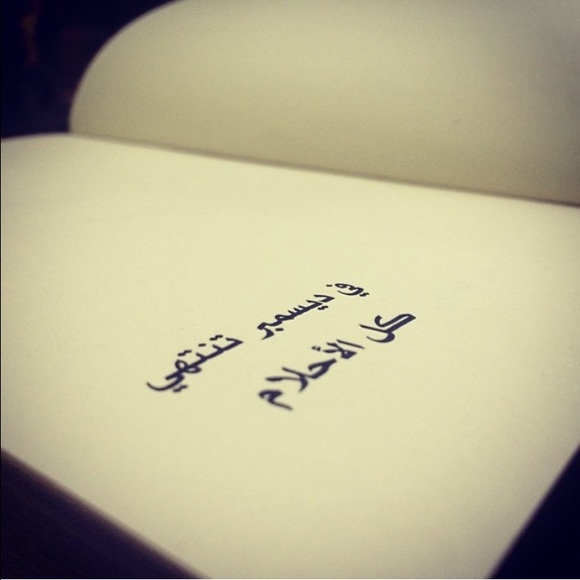 في ديسمبر تنتهي
كل الأحلام